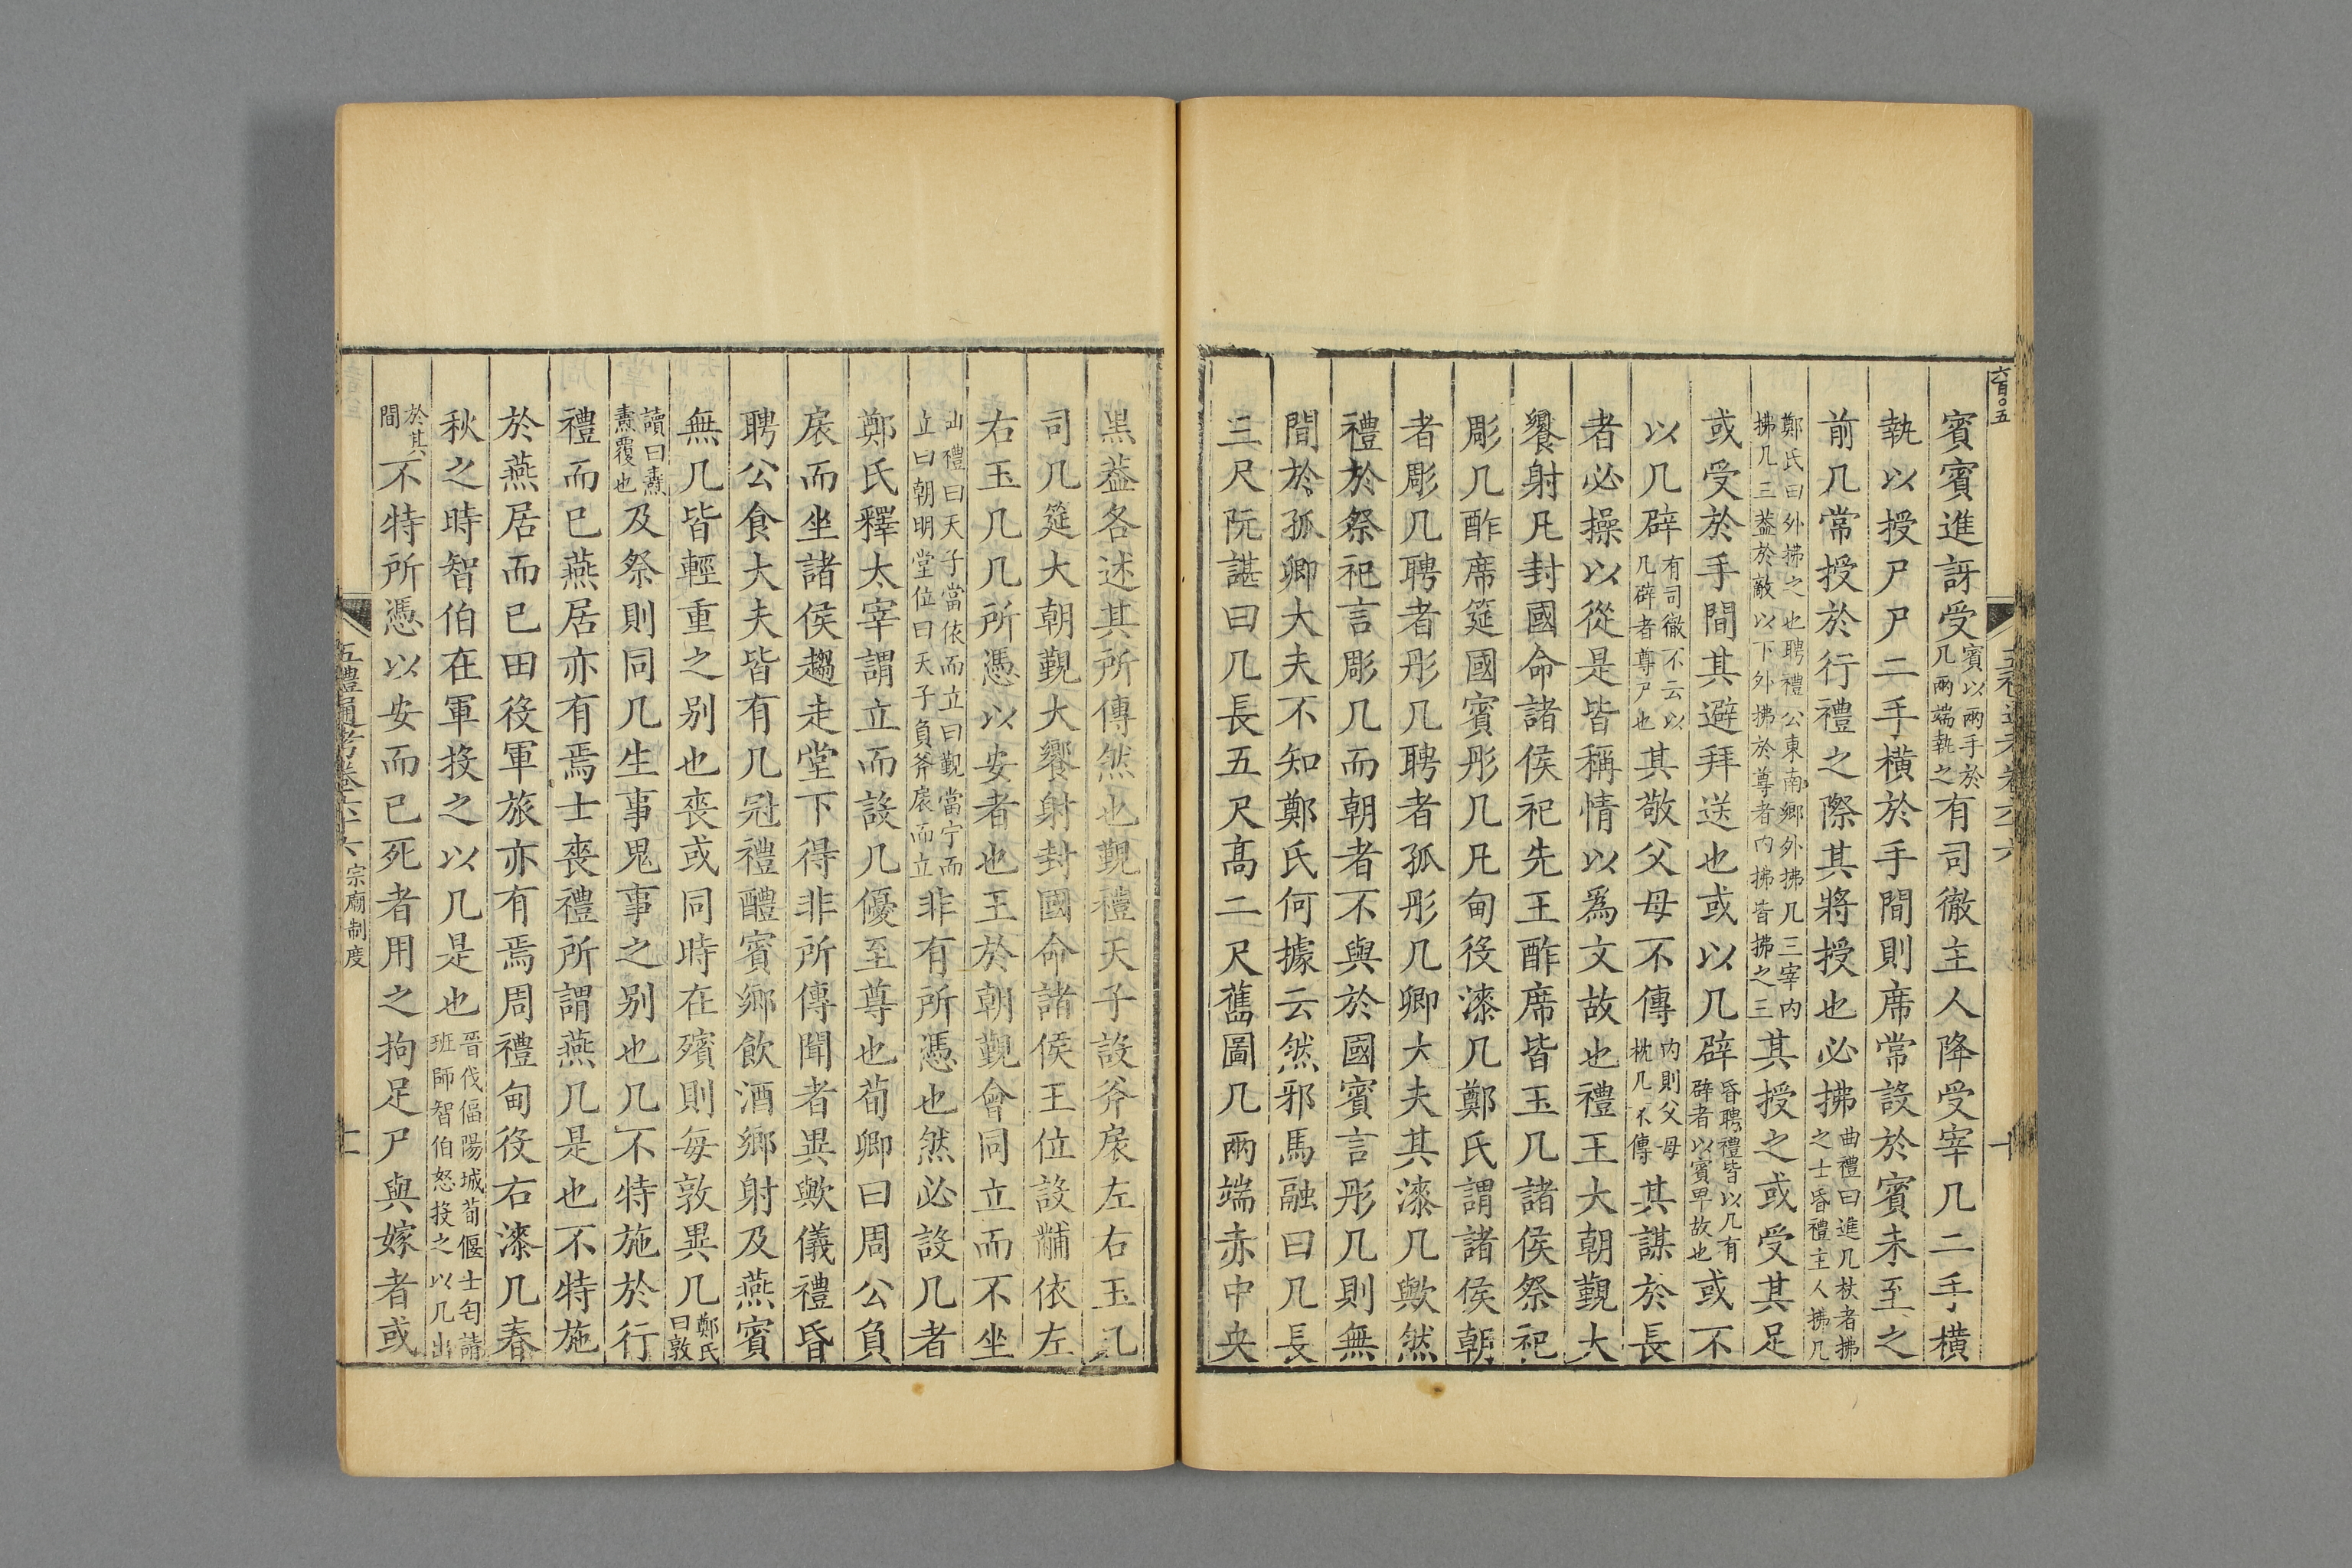 六百〇五
賓賓進訝受賓以兩手於几兩端執之有司徹主人降受宰几二手橫
執以授尸尸二手橫於手間則席常設於賓未至之
前几常授於行禮之際其將授也必拂曲禮曰進几杖者拂之士昏禮主人拂几
鄭氏曰外拂之也聘禮公東南鄉外拂几三宰內拂几三蓋於敵以下外拂於尊者內拂皆拂之三其授之或受其足
或受於手間其避拜送也或以几辟昏聘禮皆以几有辟者以賓卑故也或不
以几辟有司徹不云以几辟者尊尸也其敬父母不傳內則父母枕几不傳其謀於長
者必操以從是皆稱情以爲文故也禮王大朝覲大
饗射凡封國命諸侯祀先王酢席皆玉几諸侯祭祀
彫几酢席筵國賓彤几凡甸役漆几鄭氏謂諸侯朝
者彫几聘者彤几聘者孤彤几卿大夫其漆几歟然
禮於祭祀言彫几而朝者不與於國賓言彤几則無
間於孤卿大夫不知鄭氏何據云然邪馬融曰几長
三尺阮諶曰几長五尺高二尺舊圖几兩端赤中央
黑葢各述其所傳然也覲禮天子設斧扆左右玉几
司几筵大朝覲大饗射封國命諸侯王位設黼依左
右玉几几所憑以安者也王於朝覲會同立而不坐
曲禮曰天子當依而立曰覲當宁而立曰朝明堂位曰天子負斧扆而立非有所憑也然必設几者
鄭氏釋太宰謂立而設几優至尊也荀卿曰周公負
扆而坐諸侯趨走堂下得非所傳聞者異歟儀禮昏
聘公食大夫皆有几冠禮醴賓鄉飲酒鄉射及燕賓
無几皆輕重之別也喪或同時在殯則每敦異几鄭氏曰敦
讀曰燾燾覆也及祭則同几生事鬼事之別也几不特施於行
禮而已燕居亦有焉士喪禮所謂燕几是也不特施
於燕居而已田役軍旅亦有焉周禮甸役右漆几春
秋之時智伯在軍投之以几是也晉伐偪陽城荀偃士匄請班師智伯怒投之以几出
於其間不特所憑以安而已死者用之拘足尸與嫁者或
五禮通考卷六十六 宗廟制度